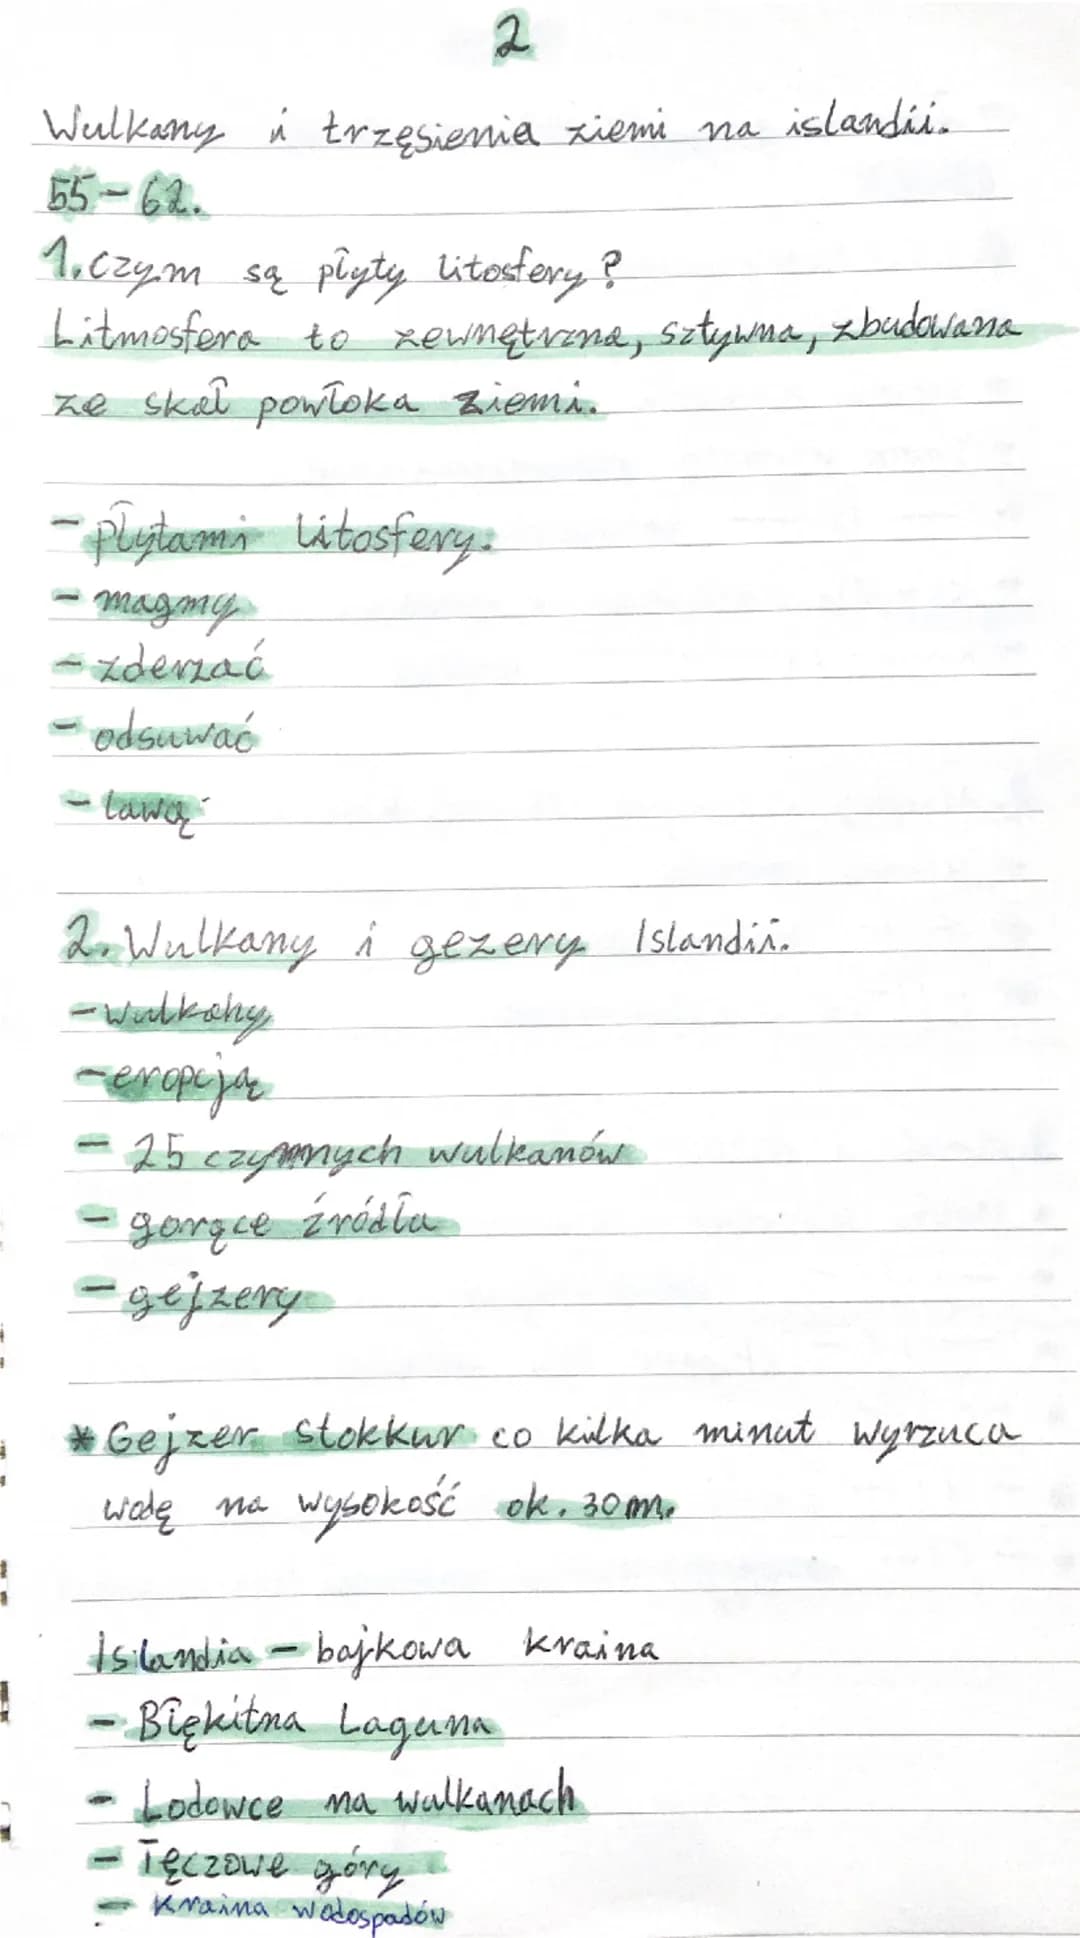 2
Wulkany i trzęsienia ziemi na islandii.
55-62.
1. Czym są płyty litosfery?
Litmosfera to zewnętrzna, sztywna, zbudowana
ze skał powłoka ziemi.
- płytami litosfery.
- magmy
- zderzać
- odsuwać
- lawą
2. Wulkany i gezery Islandii.
- wulkany
- eropcją
- 25 czynnych wulkanów
- gorące źródła
- gejzery
* Gejzer Stokkur co kilka minut wyrzuca
wodę na wysokość ok. 30 m.
Isilandia - bajkowa kraina
- Błękitna Laguna
- Lodowce na wulkanach
- Tęczowe góry
- Kraina wodospadów